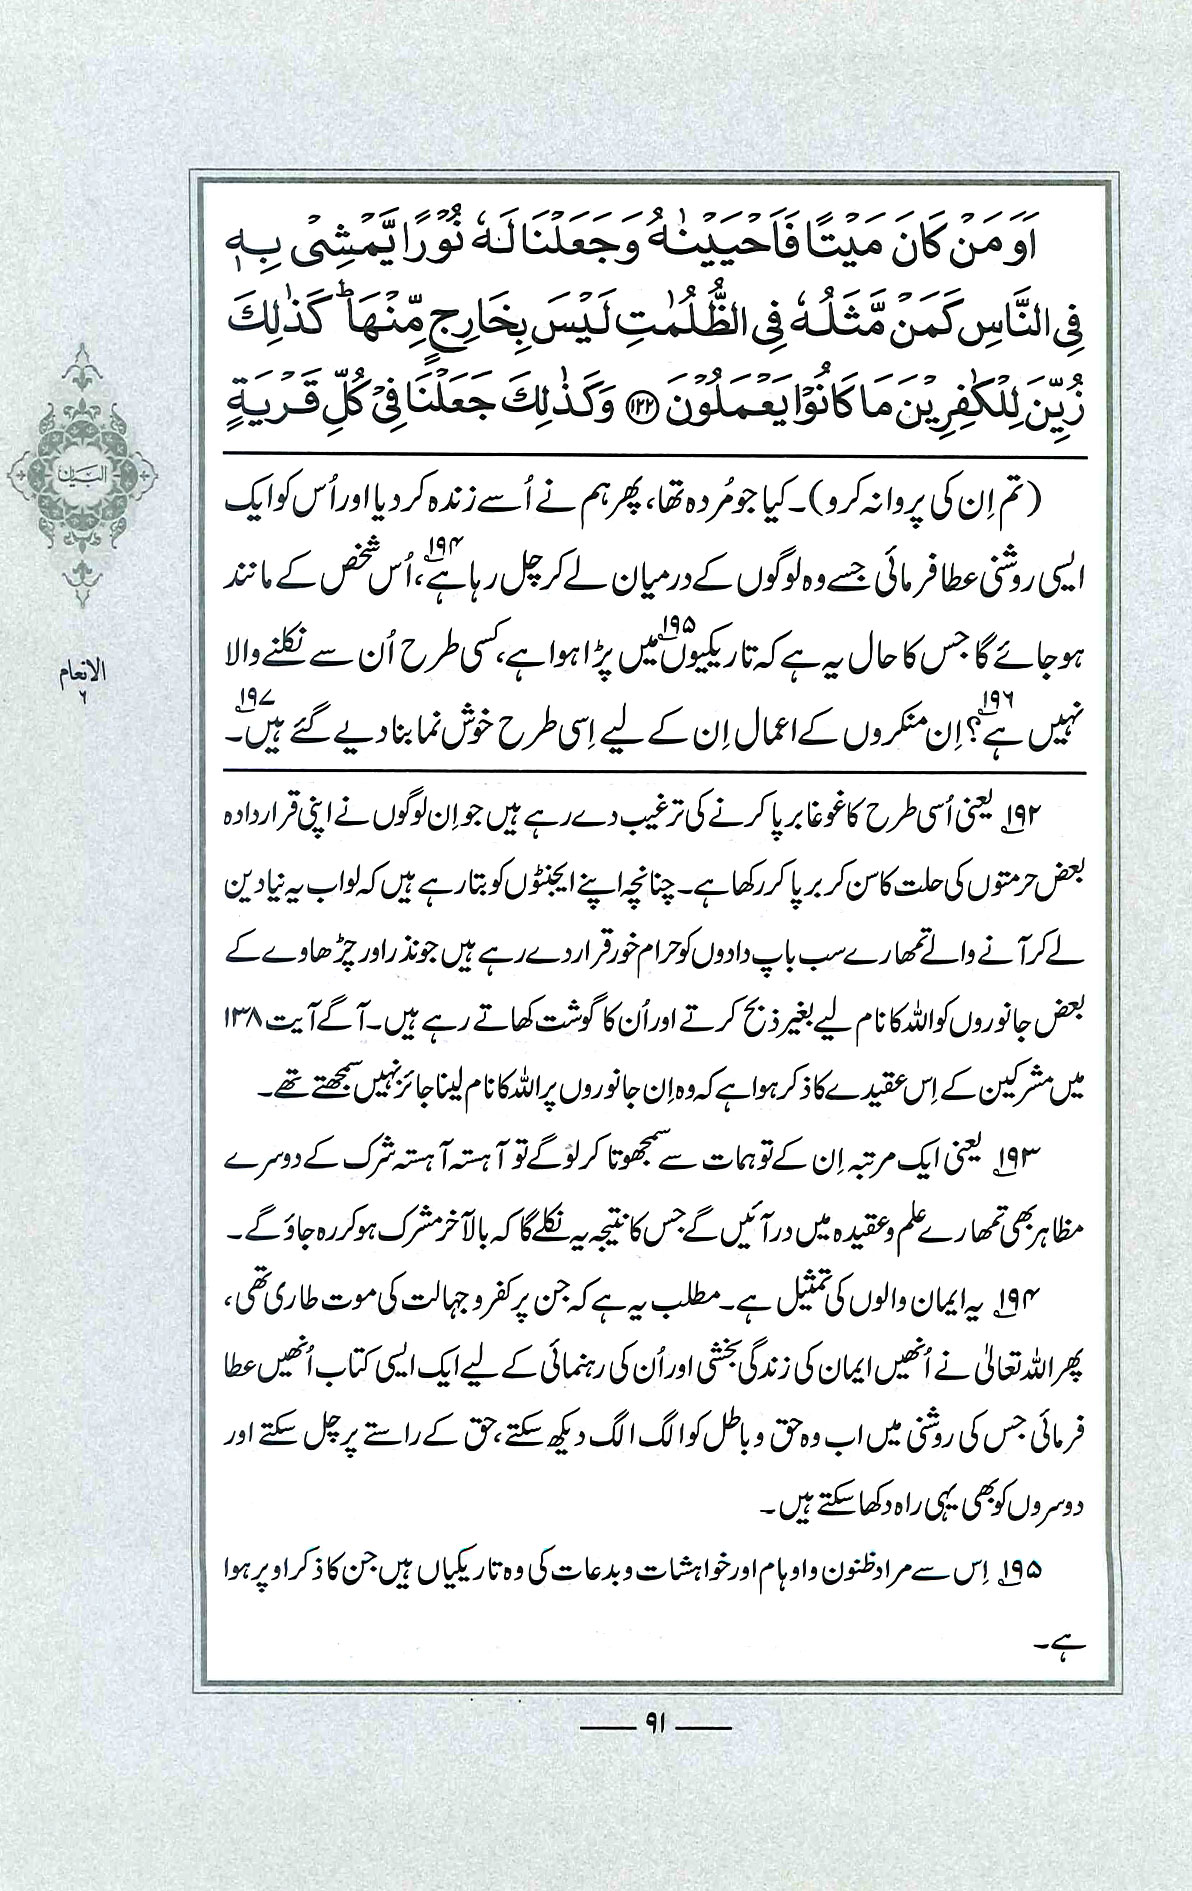 اَوَمَنْ كَانَ مَيْتًا فَاَحْيَيْنٰهُ وَجَعَلْنَا لَهٗ نُوْرًا يَّمْشِيْ بِهٖ
فِي النَّاسِ كَمَنْ مَّثَلُهٗ فِي الظُّلُمٰتِ لَيْسَ بِخَارِجٍ مِّنْهَا ؕ كَذٰلِكَ
زُيِّنَ لِلْكٰفِرِيْنَ مَا كَانُوْا يَعْمَلُوْنَ ﴿۱۲۲﴾ وَكَذٰلِكَ جَعَلْنَا فِيْ كُلِّ قَرْيَةٍ
(تم اِن کی پروا نہ کرو)۔ کیا جو مُردہ تھا، پھر ہم نے اُسے زندہ کر دیا اور اُس کو ایک
ایسی روشنی عطا فرمائی جسے وہ لوگوں کے درمیان لے کر چل رہا ہے،۱۹۴ اُس شخص کے مانند
ہو جائے گا جس کا حال یہ ہے کہ تاریکیوں۱۹۵ میں پڑا ہوا ہے، کسی طرح اُن سے نکلنے والا
نہیں ہے؟۱۹۶ اِن منکروں کے اعمال اِن کے لیے اِسی طرح خوش نما بنا دیے گئے ہیں۔۱۹۷
۱۹۲؂ یعنی اُسی طرح کا غوغا برپا کرنے کی ترغیب دے رہے ہیں جو اِن لوگوں نے اپنی قرار دادہ
بعض حرمتوں کی حلت کا سن کر برپا کر رکھا ہے۔ چنانچہ اپنے ایجنٹوں کو بتا رہے ہیں کہ لو اب یہ نیا دین
لے کر آنے والے تمھارے سب باپ دادوں کو حرام خور قرار دے رہے ہیں جو نذر اور چڑھاوے کے
بعض جانوروں کو اللہ کا نام لیے بغیر ذبح کرتے اور اُن کا گوشت کھاتے رہے ہیں۔ آگے آیت ۱۳۸
میں مشرکین کے اِس عقیدے کا ذکر ہوا ہے کہ وہ اِن جانوروں پر اللہ کا نام لینا جائز نہیں سمجھتے تھے۔
۱۹۳؂ یعنی ایک مرتبہ اِن کے توہمات سے سمجھوتا کر لو گے تو آہستہ آہستہ شرک کے دوسرے
مظاہر بھی تمھارے علم و عقیدہ میں در آئیں گے جس کا نتیجہ یہ نکلے گا کہ بالآخر مشرک ہو کر رہ جاؤ گے۔
۱۹۴؂ یہ ایمان والوں کی تمثیل ہے۔ مطلب یہ ہے کہ جن پر کفر و جہالت کی موت طاری تھی،
پھر اللہ تعالیٰ نے اُنھیں ایمان کی زندگی بخشی اور اُن کی رہنمائی کے لیے ایک ایسی کتاب اُنھیں عطا
فرمائی جس کی روشنی میں اب وہ حق و باطل کو الگ الگ دیکھ سکتے، حق کے راستے پر چل سکتے اور
دوسروں کو بھی یہی راہ دکھا سکتے ہیں۔
۱۹۵؂ اِس سے مراد ظنون و اوہام اور خواہشات و بدعات کی وہ تاریکیاں ہیں جن کا ذکر اوپر ہوا
ہے۔
البیان
الانعام
۶
۹۱